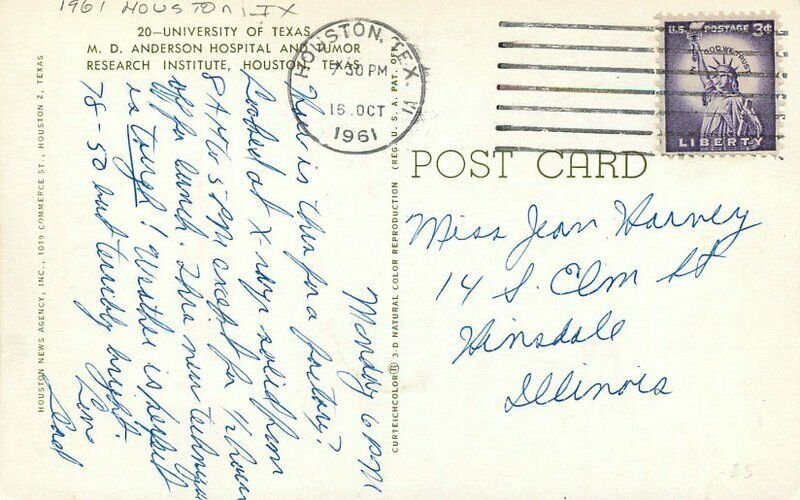 1961 HOUSTON, TX
20—UNIVERSITY OF TEXAS
M. D. ANDERSON HOSPITAL AND TUMOR
RESEARCH INSTITUTE, HOUSTON, TEXAS
HOUSTON, TEX.
7 30 PM
16 OCT
1961
U.S. POSTAGE 3¢
IN GOD WE TRUST
LIBERTY
POST CARD
Monday 6 PM
How is this for a factory?
Looked at X-rays solid from
8 AM to 5 PM except for ½ hour
off for lunch. This new technique
is tough! Weather is perfect
78-50 but terribly bright.
Love
Dad
Miss Jean Harvey
14 S. Elm St
Hinsdale
Illinois
HOUSTON NEWS AGENCY, INC., 1019 COMMERCE ST., HOUSTON 2, TEXAS
CURTEICHCOLOR® 3-D NATURAL COLOR REPRODUCTION (REG. U. S. A. PAT. OF